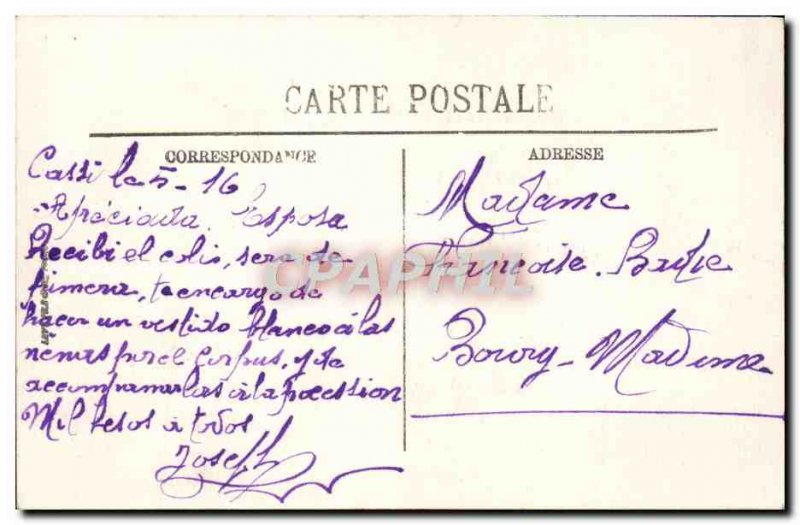 CARTE POSTALE
CORRESPONDANCE
ADRESSE
Cassi le 5-16
Apreciada Esposa
Recibi el colis, sera de
, te encargo de
hacer un vestido blanco á las
nenas por el Corpus, y de
accompañarlas á la procession
Mil besos a todos
Joseph
Madame
Françoise
Bourg-Madame
CPAPHIL